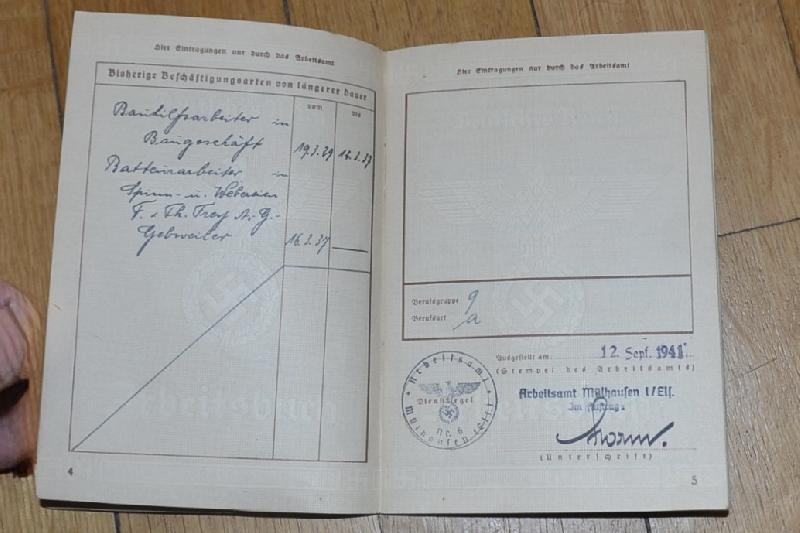 Hier Eintragungen nur durch das Arbeitsamt
Bisherige Beschäftigungsarten von längerer Dauer
vom
bis
Bauhilfsarbeiter in
Baugeschäft 19.3.29 15.3.37
Batteurarbeiter in
Spinn- u. Webereien
F. & Th. Frey A.-G.-
Gebweiler 16.3.37
4
Hier Eintragungen nur durch das Arbeitsamt
Berufsgruppe 9
Berufsart a
Ausgestellt am: 12. Sept. 1941
(Stempel des Arbeitsamts)
Arbeitsamt Mülhausen i/Els.
Im Auftrag:
(Unterschrift)
Arbeitsamt
Dienstsiegel
Nr. 6
Mülhausen (Els)
5